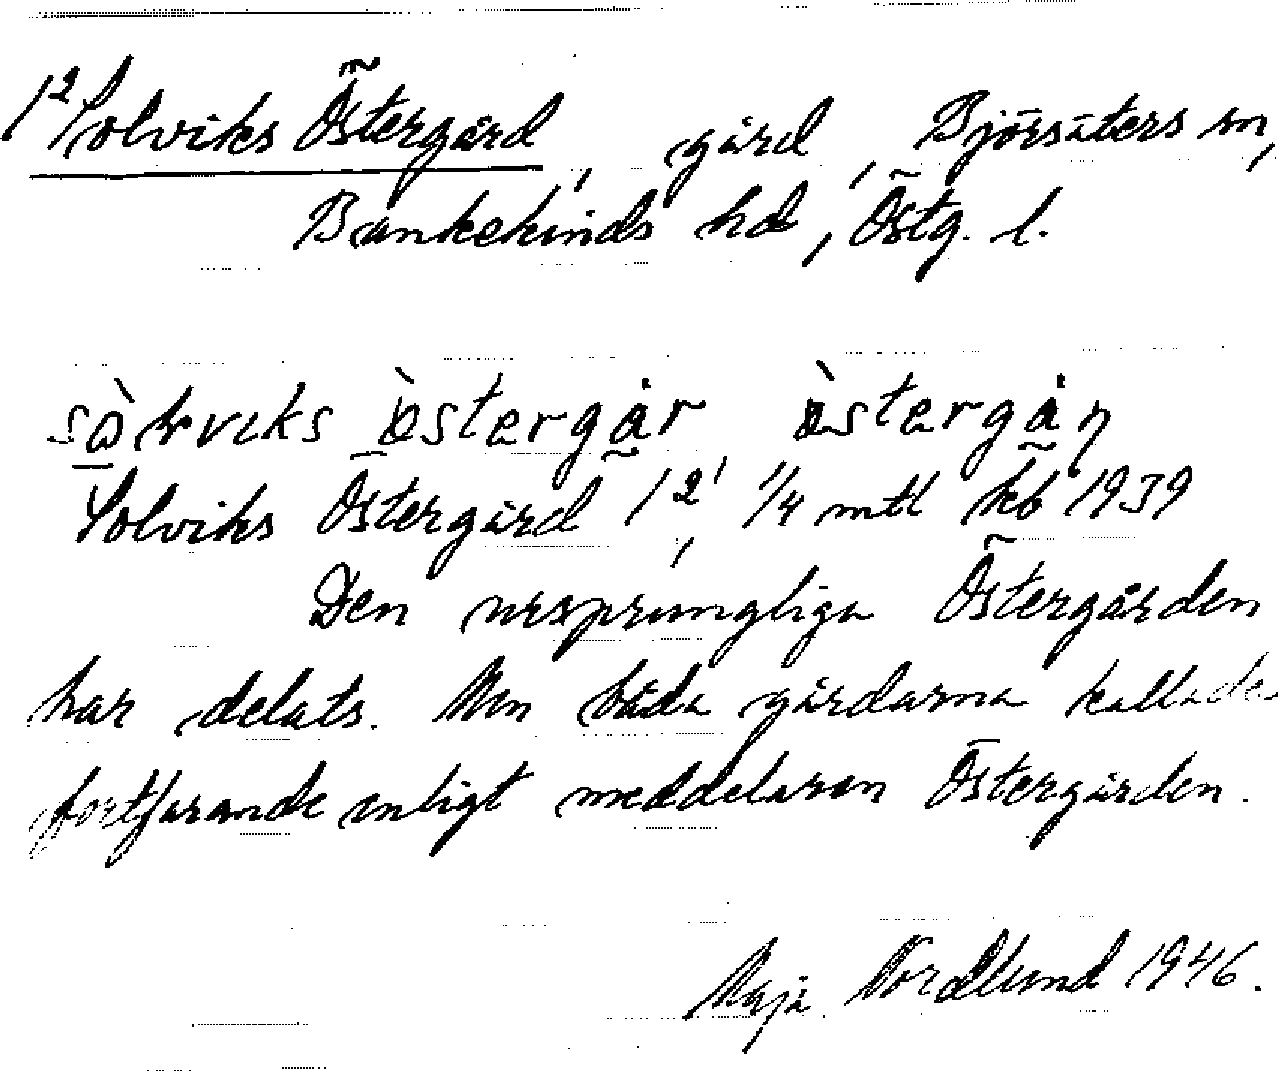 1² Solviks Östergård, gård, Björsäters sn,
Bankekinds hd, Östg. l.
östergår, östergåŋ
Solviks Östergård 1², 1/4 mtl kb 1939
Den ursprungliga Östergården
har delats. Men båda gårdarna kallades
fortfarande enligt meddelaren Östergården.
Maja Nordlund 1946.